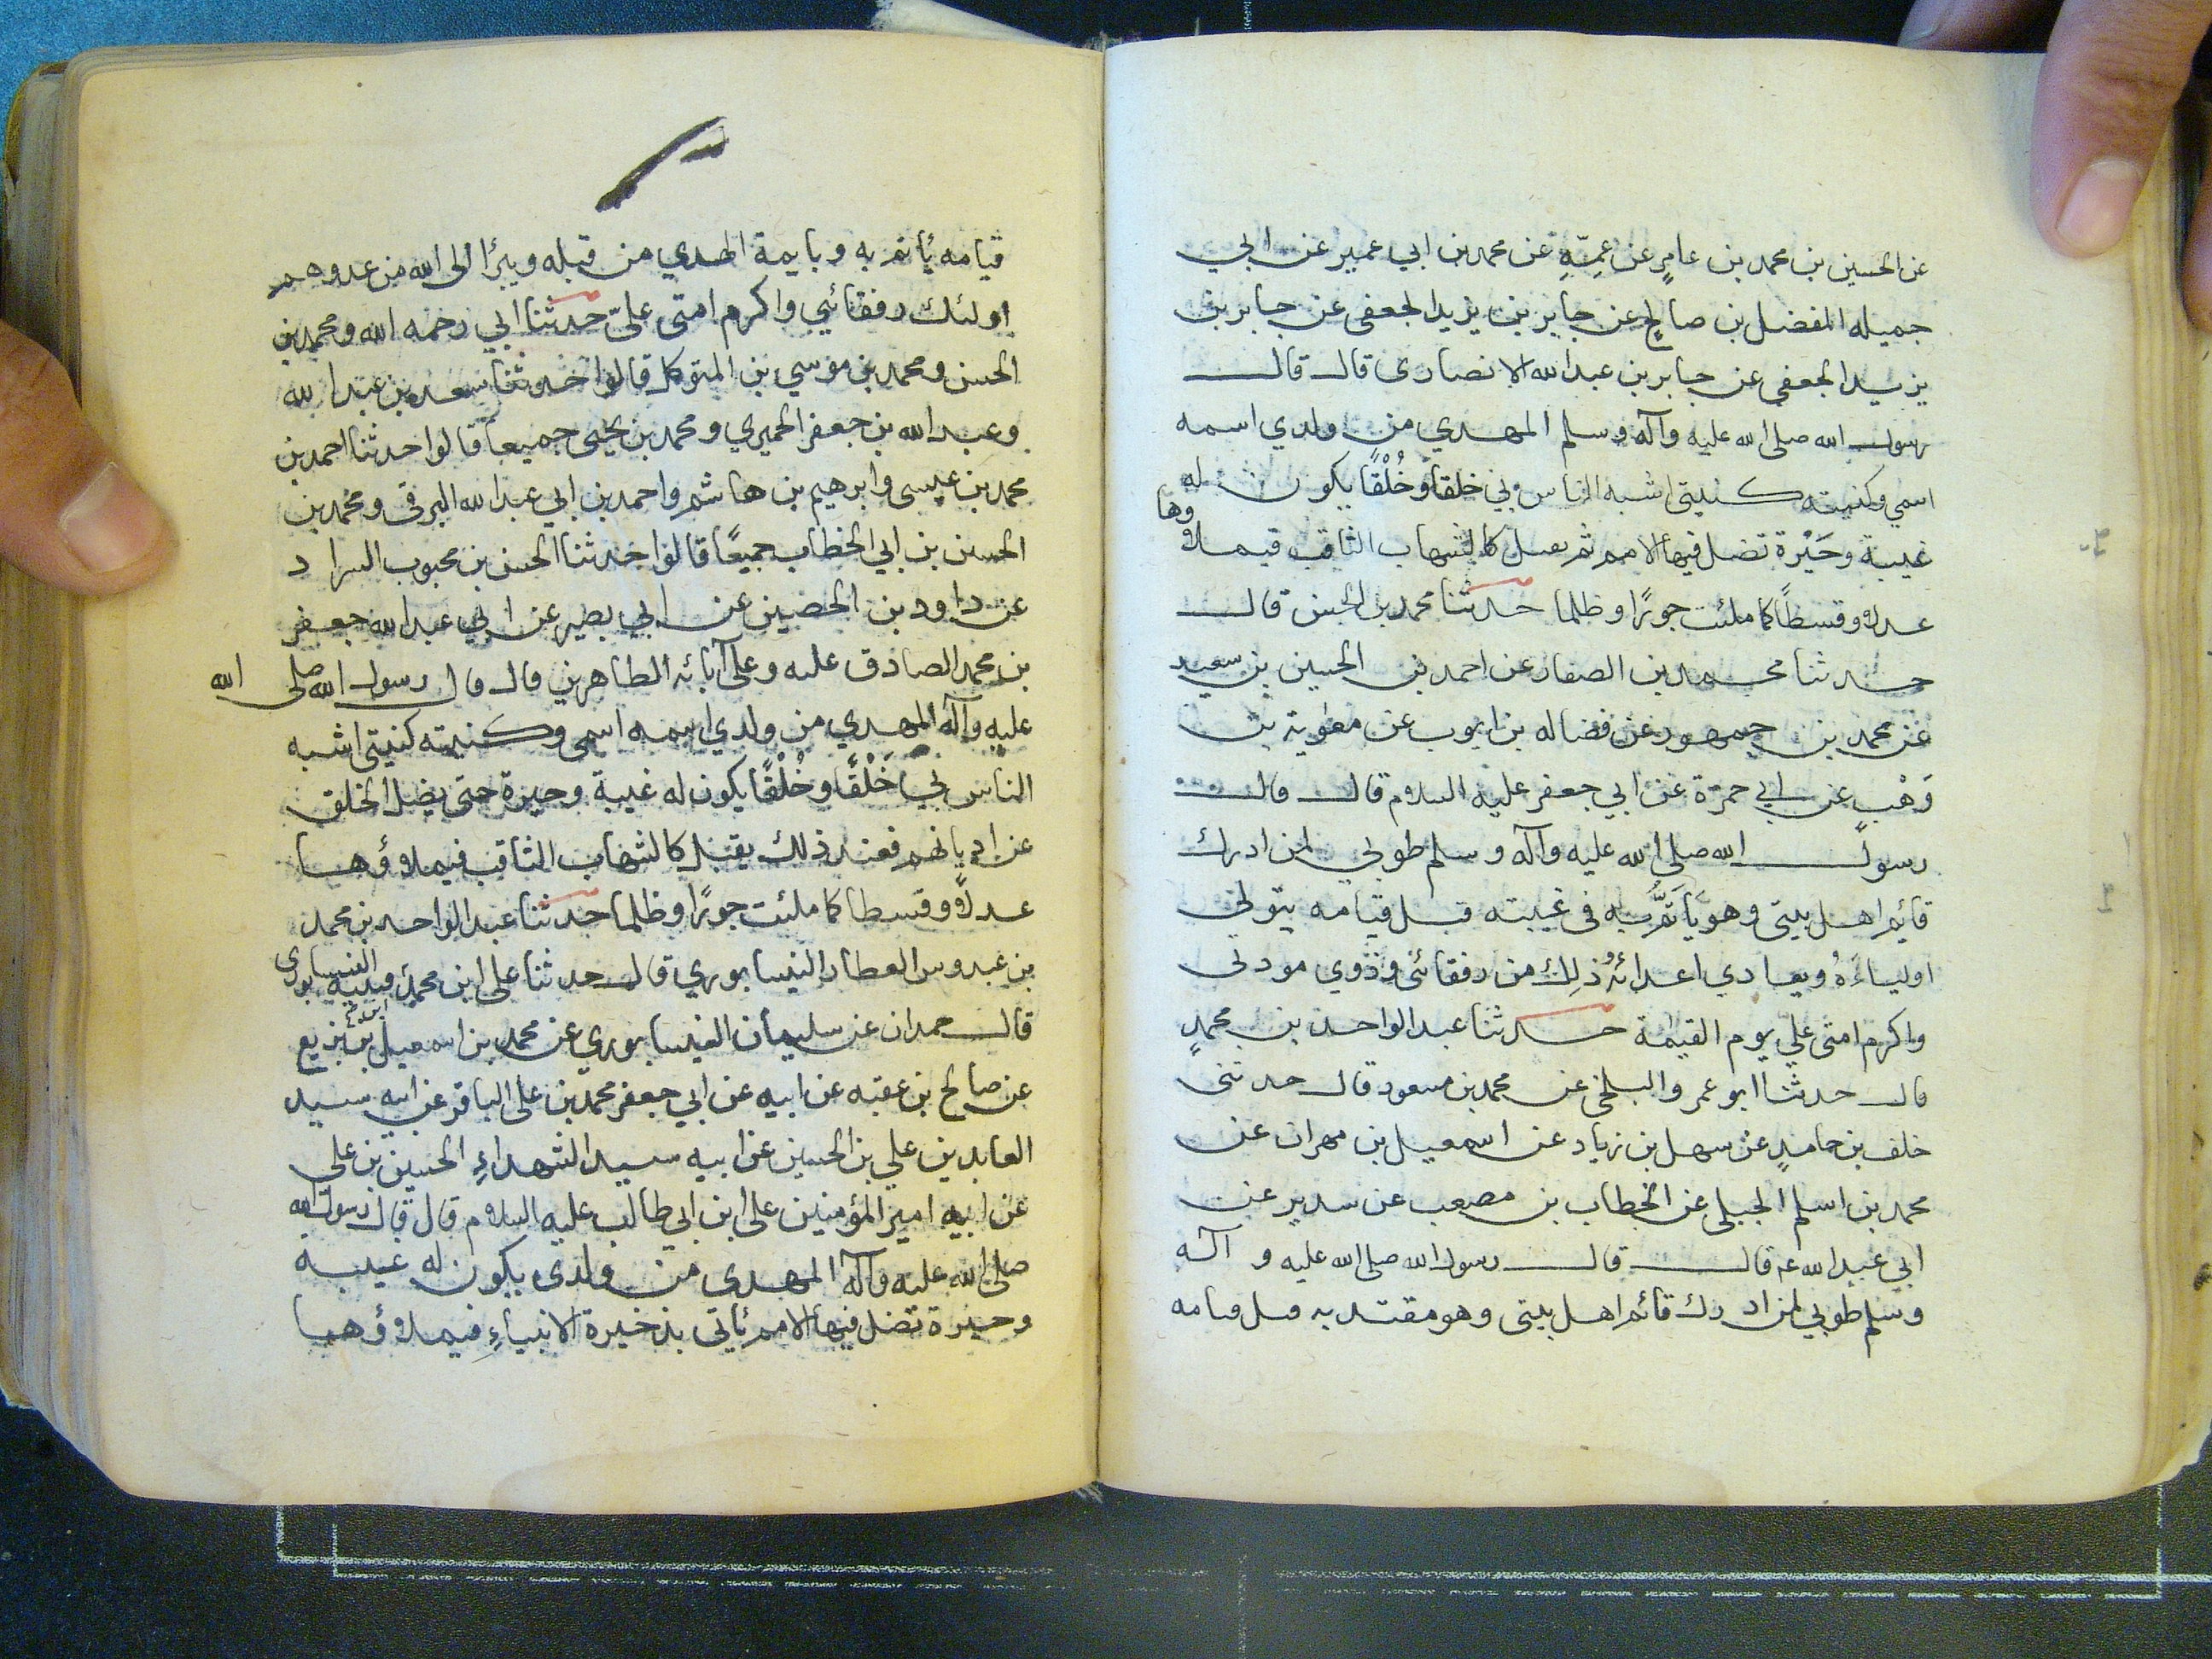 عن الحسين بن محمد بن عامرٍ عن عمِّهِ عن محمد بن ابي عمير عن ابي
جميله المفضل بن صالحٍ عن جابر بن يزيد الجعفى عن جابر بن
يزيد الجعفى عن جابر بن عبد الله الانصارى قال قال
رسول الله صلى الله عليه وآله وسلم المهدي من ولدي اسمه
اسمي وكنيته كنيتي اشبه الناس بي خلقاً وخُلْقًا يكون له
غيبة وحَيْرة تضل فيها الامم ثم يقبل كالشهاب الثاقب فيملاؤها
عدلا وقسطاً كما ملئت جورًا وظلما حدثنا محمد بن الحسن قال
حدثنا محمد بن الصفار عن احمد بن الحسين بن سعيد
عن محمد بن جمهور عن فضاله بن ايوب عن معوية بن
وَهْبٍ عن ابي حمزة عن ابي جعفر عليه السلام قال قال
رسول الله صلى الله عليه وآله وسلم طوبى لمن ادرك
قايم اهل بيتى وهو يَأتَمُّ بِه فى غيبته قبل قيامه يتولى
اولياءَهُ ويعادي اعدائَهُ ذلِك من رفقائى وذوي مودتى
واكرم امتى علي يوم القيٰمة حدثنا عبد الواحد بن محمدٍ
قال حدثنا ابو عمرو البلخى عن محمد بن مسعود قال حدثنى
خلف بن حامدٍ عن سهل بن زياد عن اسمعيل بن مهران عن
محمد بن اسلم الجبلى عن الخطاب بن مصعب عن سدير عن
ابي عبد الله عه قال قال رسول الله صلى الله عليه و آله
وسلم طوبي لمن ادرك قائم اهل بيتى وهو مقتد به قبل قيامه
قيامه يأتم به وبايمة الهدي من قبله ويبرأ الى الله من عدوهم
اولئك رفقائي واكرم امتى علىّ حدثنا ابي رحمه الله ومحمد بن
الحسن ومحمد بن موسي بن المتوكل قالوا حدثنا سعد بن عبد الله
وعبد الله بن جعفر الحميري ومحمد بن يحيى جميعاً قالوا حدثنا احمد بن
محمد بن عيسى وابرهيم بن هاشم واحمد بن ابي عبد الله البرقى ومحمد بن
الحسين بن ابي الخطاب جميعًا قالوا حدثنا الحسن بن محبوب السراد
عن داود بن الحصين عن ابي بصير عن ابي عبد الله جعفر
بن محمد الصادق عليه وعلى آبائه الطاهرين قال قال رسول الله صلى الله
عليه وآله المهدي من ولدي اسمه اسمى وكنيته كنيتى اشبه
الناس بي خَلْقًا وخُلْقًا يكون له غيبة وحيرة حتى يضل الخلق
عن اديانهم فعند ذلك يقبل كالشهاب الثاقب فيملاؤها
عدلاً وقسطا كما ملئت جورًا وظلما حدثنا عبد الواحد بن محمد
بن عبدوس العطار النيسابوري قال حدثنا على ابن محمد قتيبة النيسابورى
قال حمدان عن سليمان النيسابوري عن محمد بن اسمعيل بن بزيع
عن صالح بن عقبه عن ابيه عن ابي جعفر محمد بن على الباقر عن ابيه سيد
العابدين علي بن الحسين عن ابيه سيد الشهداءِ الحسين بن علي
عن ابيه امير المؤمنين على ابن ابي طالب عليه السلام قال قال رسول الله
صلى الله عليه وآله المهدي من ولدى يكون له غيبة
وحيرة تضل فيها الامم يأتى بذخيرة الانبياءِ فيملاؤها